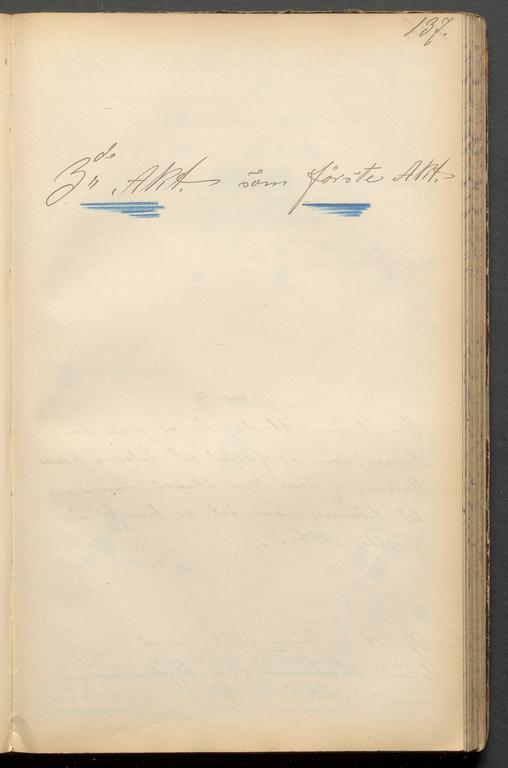 137.
3de Akt. som förste Akt.